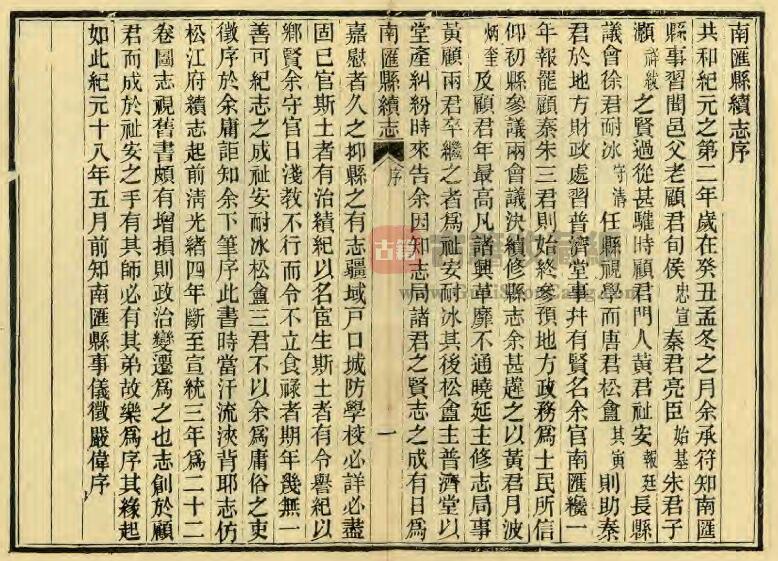 南匯縣續志序
共和紀元之第二年歲在癸丑孟冬之月余承符知南匯
縣事習聞邑父老顧君旬侯忠宣秦君亮臣始基朱君子
灝祥紱之賢過從甚驩時顧君門人黃君祉安報廷長縣
議會徐君耐冰守清任縣視學而唐君松盦其寅則助秦
君於地方財政處習普濟堂事幷有賢名余官南匯纔一
年報罷顧秦朱三君則始終參預地方政務爲士民所信
仰初縣參議兩會議決續修縣志余甚趯之以黃君月波
炳奎及顧君年最高凡諸興革靡不通曉延主修志局事
黃顧兩君卒繼之者爲祉安耐冰其後松盦主普濟堂以
堂產糾紛時來告余因知志局諸君之賢志之成有日爲
南匯縣續志 序 一
嘉慰者久之抑縣之有志疆域戸口城防學校必詳必盡
固已官斯土者有治績紀以名宦生斯土者有令譽紀以
鄉賢余守官日淺教不行而令不立食祿者期年幾無一
善可紀志之成祉安耐冰松盦三君不以余爲庸俗之吏
徵序於余庸詎知余下筆序此書時當汗流浹背耶志仿
松江府續志起前淸光緒四年斷至宣統三年爲二十二
卷圖志視舊書頗有增損則政治變遷爲之也志創於顧
君而成於祉安之手有其師必有其弟故樂爲序其緣起
如此紀元十八年五月前知南匯縣事儀徵嚴偉序
古籍
www.GuJiShouCang.com